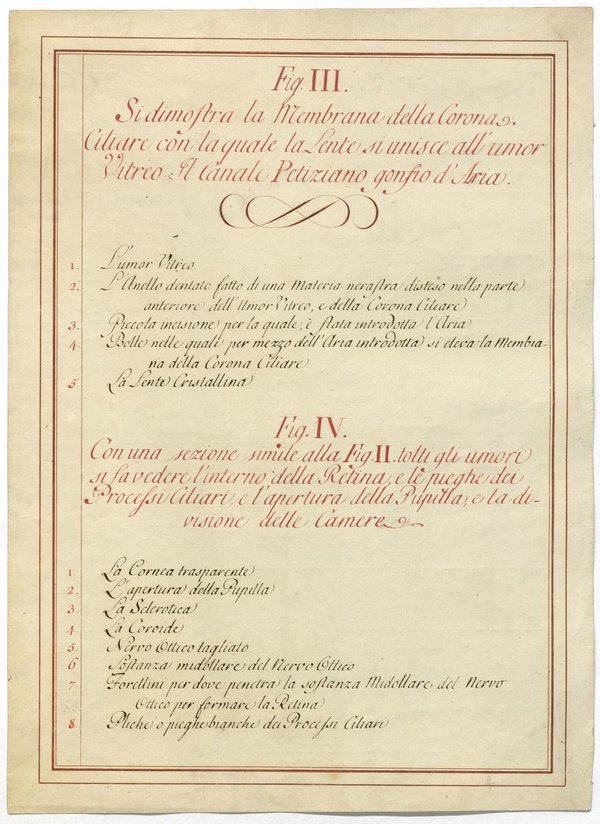 Fig. III.
Si dimostra la Membrana della Corona
Ciliare con la quale la Lente si unisce all'umor
Vitreo. Il Canale Petiziano gonfio d'Aria.
1. L'umor Vitreo
2. L'Anello dentato fatto di una Materia nerastra disteso nella parte
anteriore dell'Umor Vitreo, e della Corona Ciliare
3. Piccola incisione per la quale, è stata introdotta l'Aria
4. Bolle nelle quali per mezzo dell'Aria introdotta si eleva la Membra-
na della Corona Ciliare
5. La Lente Cristallina
Fig. IV.
Con una sezione simile alla Fig. II. tolti gli umori
si fa vedere l'interno della Retina, e le pieghe dei
Processi Ciliari, e l'apertura della Pupilla, e la di-
visione delle Camere
1. La Cornea trasparente
2. L'apertura della Pupilla
3. La Sclerotica
4. La Coroide
5. Nervo Ottico tagliato
6. Sostanza midollare del Nervo Ottico
7. Forellini per dove penetra la sostanza Midollare del Nervo
Ottico per formare la Retina
8. Pliche o pieghe bianche dei Processi Ciliari